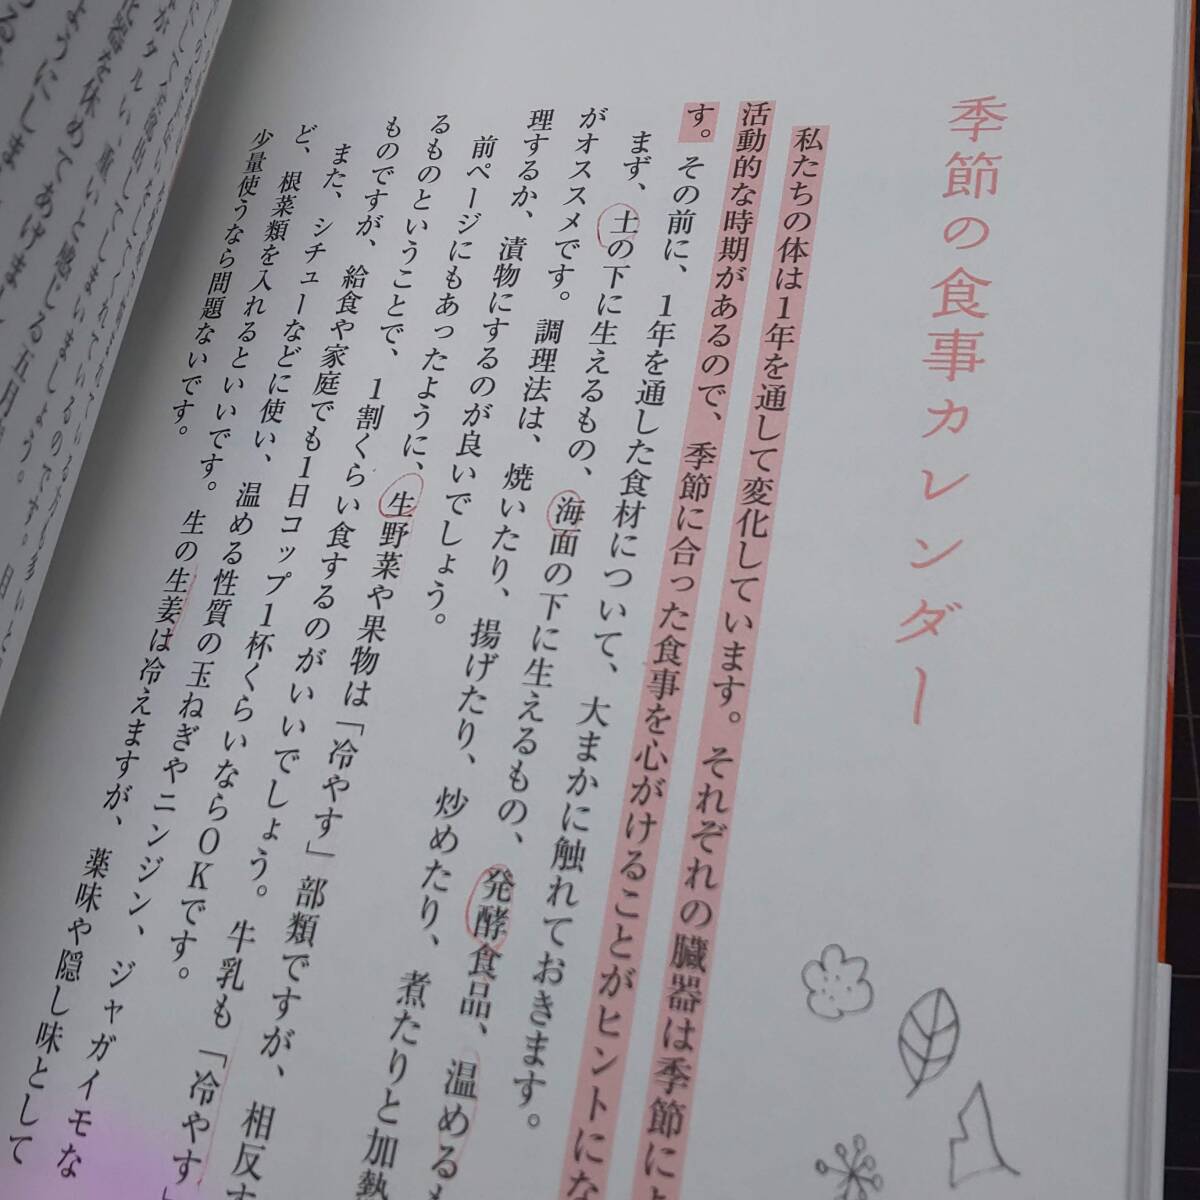 季節の食事カレンダー
私たちの体は1年を通して変化しています。それぞれの臓器は季節によ
活動的な時期があるので、季節に合った食事を心がけることがヒントにな
す。その前に、1年を通した食材について、大まかに触れておきます。
まず、土の下に生えるもの、海面の下に生えるもの、発酵食品、温めるも
がオススメです。調理法は、焼いたり、揚げたり、炒めたり、煮たりと加熱
理するか、漬物にするのが良いでしょう。
前ページにもあったように、生野菜や果物は「冷やす」部類ですが、相反す
るものということで、1割くらい食するのがいいでしょう。牛乳も「冷やす」
ものですが、給食や家庭でも1日コップ1杯くらいならOKです。
また、シチューなどに使い、温める性質の玉ねぎやニンジン、ジャガイモな
ど、根菜類を入れるといいです。生の生姜は冷えますが、薬味や隠し味として
少量使うなら問題ないです。
いと感じる五月
な休めてあげま
ようにしま